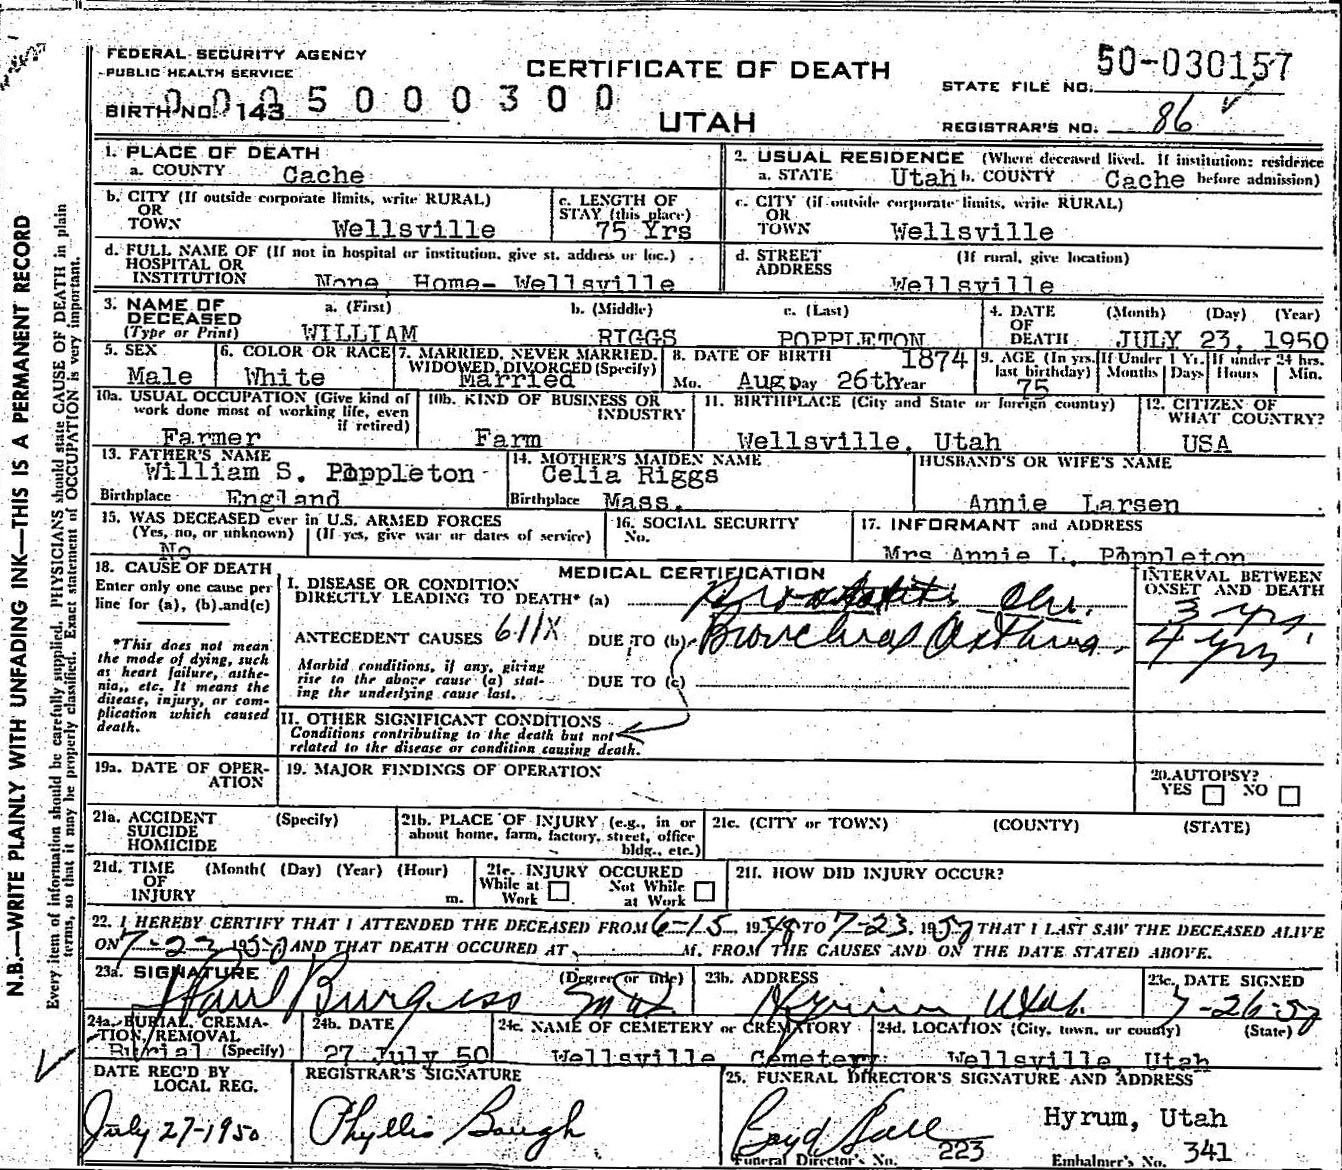 FEDERAL SECURITY AGENCY
PUBLIC HEALTH SERVICE
CERTIFICATE OF DEATH
UTAH
STATE FILE NO. 50-030157
BIRTH NO. 143 0005000300
REGISTRAR'S NO. 86
1. PLACE OF DEATH
a. COUNTY Cache
2. USUAL RESIDENCE (Where deceased lived. If institution: residence before admission)
a. STATE Utah b. COUNTY Cache
b. CITY (If outside corporate limits, write RURAL)
OR
TOWN Wellsville
c. LENGTH OF
STAY (this place)
75 Yrs
c. CITY (if outside corporate limits, write RURAL)
OR
TOWN Wellsville
d. FULL NAME OF (If not in hospital or institution, give st. address or loc.)
HOSPITAL OR
INSTITUTION None, Home- Wellsville
d. STREET (If rural, give location)
ADDRESS Wellsville
3. NAME OF DECEASED (Type or Print)
a. (First) b. (Middle) c. (Last)
WILLIAM RIGGS POPPLETON
4. DATE OF DEATH (Month) (Day) (Year)
JULY 23, 1950
5. SEX
Male
6. COLOR OR RACE
White
7. MARRIED, NEVER MARRIED,
WIDOWED, DIVORCED (Specify)
Married
8. DATE OF BIRTH 1874
Mo. Aug Day 26th Year
9. AGE (In yrs. last birthday) If Under 1 Yr. If under 24 hrs.
75 Months Days Hours Min.
10a. USUAL OCCUPATION (Give kind of
work done most of working life, even
if retired)
Farmer
10b. KIND OF BUSINESS OR
INDUSTRY
Farm
11. BIRTHPLACE (City and State or foreign country)
Wellsville, Utah
12. CITIZEN OF
WHAT COUNTRY?
USA
13. FATHER'S NAME
William S. Poppleton
Birthplace England
14. MOTHER'S MAIDEN NAME
Celia Riggs
Birthplace Mass.
HUSBAND'S OR WIFE'S NAME
Annie Larsen
15. WAS DECEASED ever in U.S. ARMED FORCES
(Yes, no, or unknown) (If yes, give war or dates of service)
No
16. SOCIAL SECURITY
No.
17. INFORMANT and ADDRESS
Mrs Annie L. Poppleton
18. CAUSE OF DEATH
Enter only one cause per
line for (a), (b) and (c)
*This does not mean
the mode of dying, such
as heart failure, asthe-
nia, etc. It means the
disease, injury, or com-
plication which caused
death.
MEDICAL CERTIFICATION
INTERVAL BETWEEN
ONSET AND DEATH
I. DISEASE OR CONDITION
DIRECTLY LEADING TO DEATH* (a) Chr.
3 yrs
ANTECEDENT CAUSES DUE TO (b) Bronchial Asthma.
4 yrs
Morbid conditions, if any, giving
rise to the above cause (a) stat-
ing the underlying cause last.
DUE TO (c)
II. OTHER SIGNIFICANT CONDITIONS
Conditions contributing to the death but not
related to the disease or condition causing death.
19a. DATE OF OPER-
ATION
19. MAJOR FINDINGS OF OPERATION
20. AUTOPSY?
YES NO
21a. ACCIDENT (Specify)
SUICIDE
HOMICIDE
21b. PLACE OF INJURY (e.g., in or
about home, farm, factory, street, office
bldg., etc.)
21c. (CITY or TOWN) (COUNTY) (STATE)
21d. TIME (Month( (Day) (Year) (Hour)
OF
INJURY m.
21e. INJURY OCCURED
While at Work Not While at Work
21f. HOW DID INJURY OCCUR?
22. I HEREBY CERTIFY THAT I ATTENDED THE DECEASED FROM 6-15 1949 TO 7-23, 1950 THAT I LAST SAW THE DECEASED ALIVE
ON 7-23 1950 AND THAT DEATH OCCURED AT M. FROM THE CAUSES AND ON THE DATE STATED ABOVE.
23a. SIGNATURE (Degree or title)
Paul Burgess MD
23b. ADDRESS
Hyrum, Utah.
23c. DATE SIGNED
7-26-50
24a. BURIAL, CREMA-
TION, REMOVAL
Burial (Specify)
24b. DATE
27 July 50
24c. NAME OF CEMETERY or CREMATORY
Wellsville Cemetery
24d. LOCATION (City, town, or county) (State)
Wellsville, Utah
DATE REC'D BY
LOCAL REG.
July 27-1950
REGISTRAR'S SIGNATURE
Phyllis Baugh
25. FUNERAL DIRECTOR'S SIGNATURE AND ADDRESS
Boyd Hall Hyrum, Utah
Funeral Director's No. 223 Embalmer's No. 341
N.B.—WRITE PLAINLY WITH UNFADING INK—THIS IS A PERMANENT RECORD
Every item of information should be carefully supplied. PHYSICIANS should state CAUSE OF DEATH in plain
terms, so that it may be properly classified. Exact statement of OCCUPATION is very important.